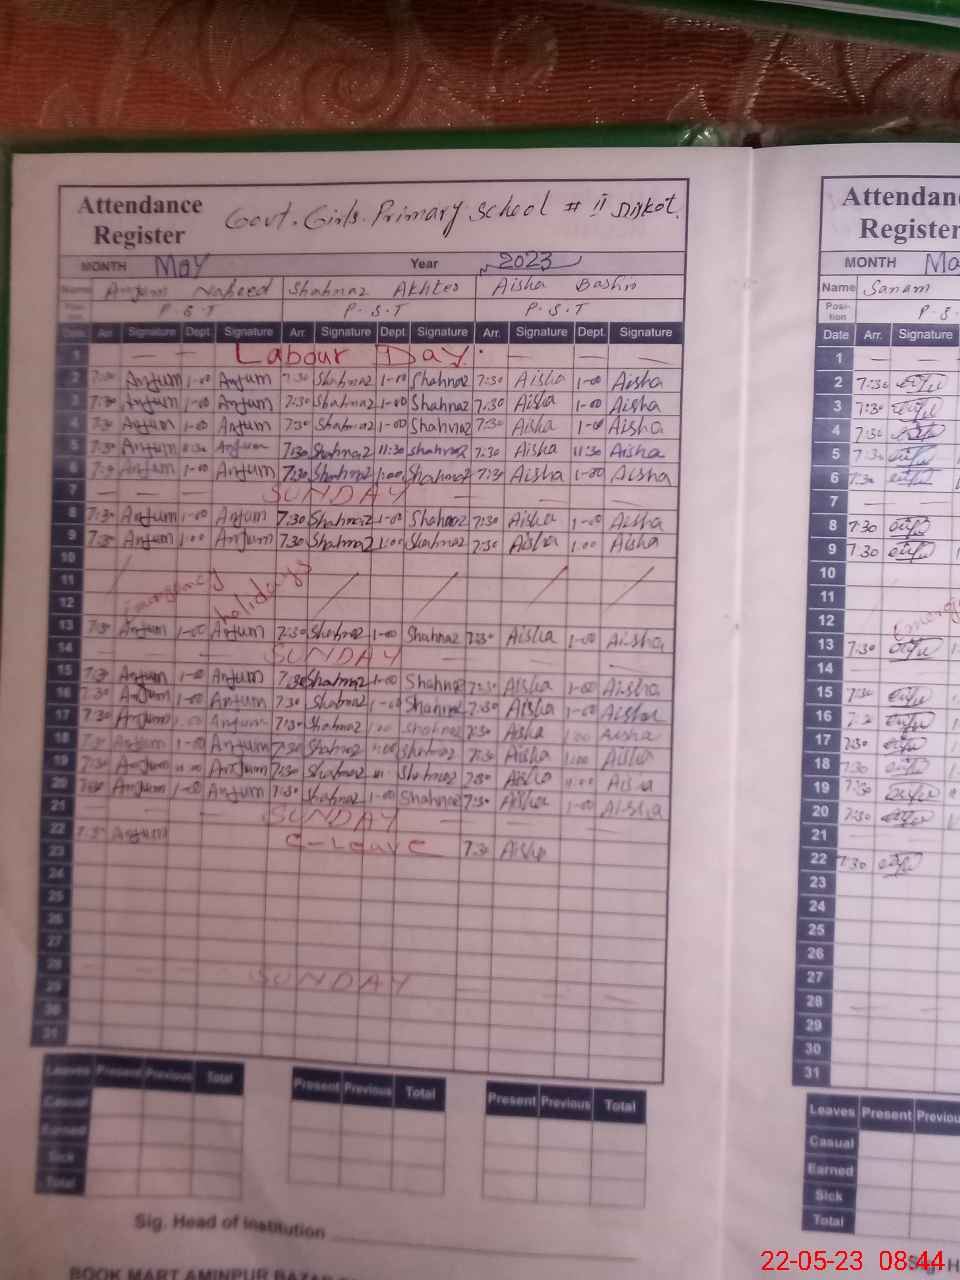 Attendance Register Govt. Girls. Primary School # II
MONTH May Year 2023
Name Anjum Naheed Shahnaz Akhter Aisha Bashir
Position P.S.T P.S.T P.S.T
Date Arr. Signature Dept. Signature Arr. Signature Dept. Signature Arr. Signature Dept. Signature
1 Labour Day.
2 7:30 Anjum 1-00 Anjum 7:30 Shahnaz 1-00 Shahnaz 7:30 Aisha 1-00 Aisha
3 7:30 Anjum 1-00 Anjum 7:30 Shahnaz 1-00 Shahnaz 7:30 Aisha 1-00 Aisha
4 7:30 Anjum 1-00 Anjum 7:30 Shahnaz 1-00 Shahnaz 7:30 Aisha 1-00 Aisha
5 7:30 Anjum 11:30 Anjum 7:30 Shahnaz 11:30 Shahnaz 7:30 Aisha 11:30 Aisha
6 7:30 Anjum 1-00 Anjum 7:30 Shahnaz 1:00 Shahnaz 7:30 Aisha 1-00 Aisha
7 SUNDAY
8 7:30 Anjum 1-00 Anjum 7:30 Shahnaz 1-00 Shahnaz 7:30 Aisha 1-00 Aisha
9 7:30 Anjum 1:00 Anjum 7:30 Shahnaz 1:00 Shahnaz 7:30 Aisha 1:00 Aisha
10
11 Emergency holidays
12
13 7:30 Anjum 1-00 Anjum 7:30 Shahnaz 1-00 Shahnaz 7:30 Aisha 1-00 Aisha
14 SUNDAY
15 7:30 Anjum 1-00 Anjum 7:30 Shahnaz 1-00 Shahnaz 7:30 Aisha 1-00 Aisha
16 7:30 Anjum 1-00 Anjum 7:30 Shahnaz 1-00 Shahnaz 7:30 Aisha 1-00 Aisha
17 7:30 Anjum 1:00 Anjum 7:30 Shahnaz 1:00 Shahnaz 7:30 Aisha 1:00 Aisha
18 7:30 Anjum 1-00 Anjum 7:30 Shahnaz 1:00 Shahnaz 7:30 Aisha 1:00 Aisha
19 7:30 Anjum Anjum 7:30 Shahnaz Shahnaz 7:30 Aisha Aisha
20 7:30 Anjum 1-00 Anjum 7:30 Shahnaz 1-00 Shahnaz 7:30 Aisha 1-00 Aisha
21 SUNDAY
22 7:30 Anjum C-Leave 7:30 Aisha
23
24
25
26
27
28 SUNDAY
29
30
31
Leaves Present Previous Total Present Previous Total Present Previous Total
Casual
Earned
Sick
Total
Sig. Head of Institution
BOOK MART AMINPUR BAZAR
Register
MONTH
Name Sanam
Position P.S.
Date Arr. Signature
1
2 7:30
3 7:30
4 7:30
5 7:30
6 7:30
7
8 7:30
9 7:30
10
11
12
13 7:30
14
15 7:30
16
17 7:30
18 7:30
19 7:30
20 7:30
21
22 7:30
23
24
25
26
27
28
29
30
31
Leaves Present
Casual
Earned
Sick
Total
22-05-23 08:44